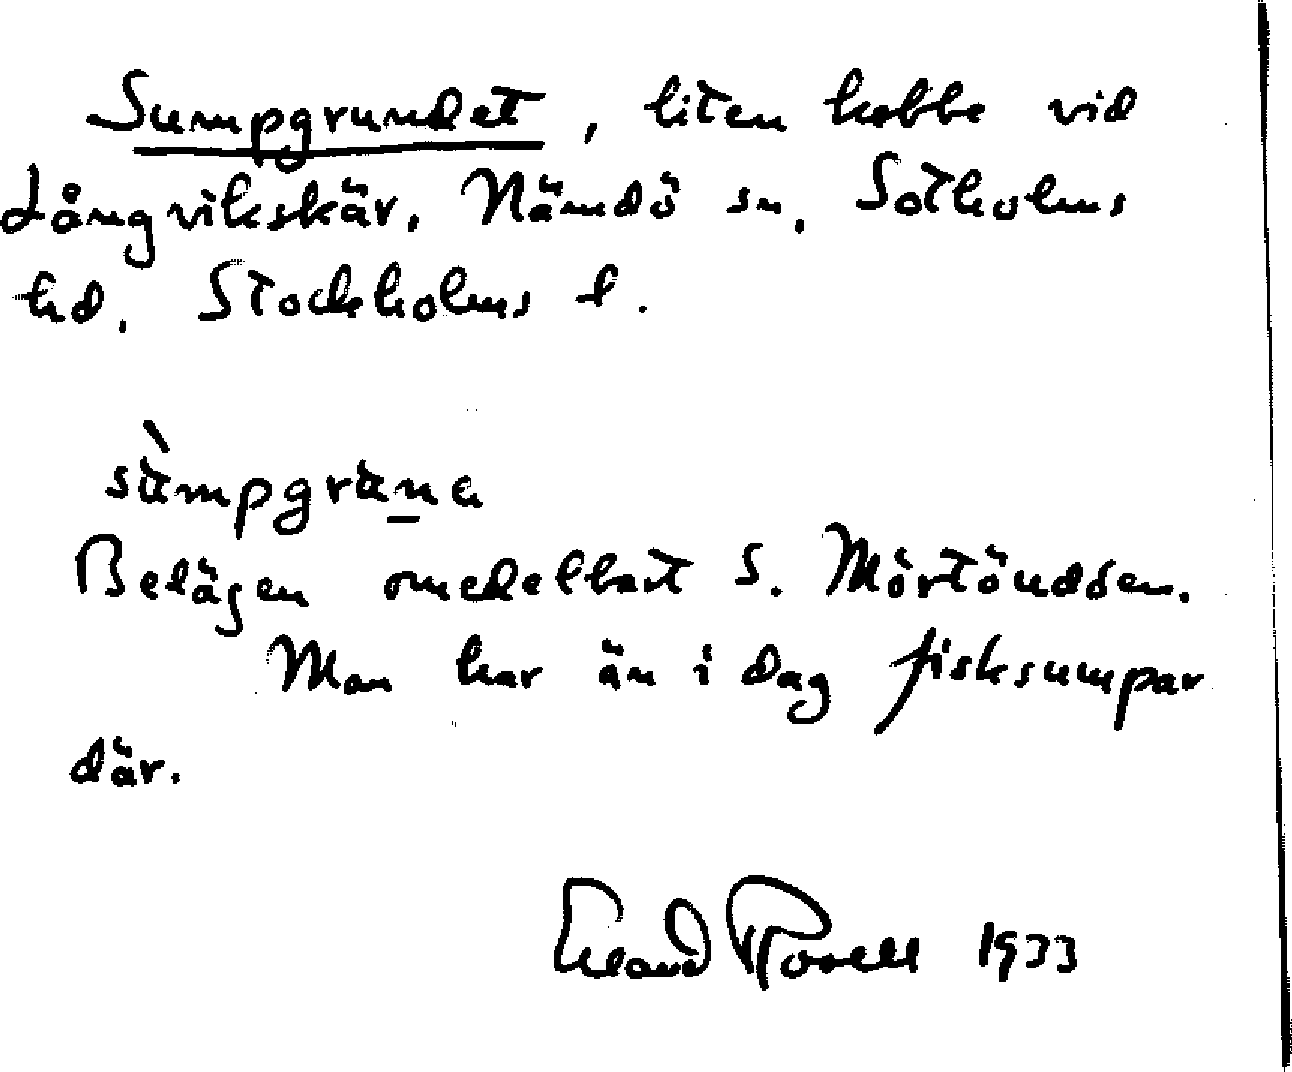 Sumpgrundet, liten kobbe vid
Långvikskär, Nämdö sn, Sotholms
hd, Stockholms l.
sùmpgruna
Belägen omedelbart S. Mörtöudden.
Man har än i dag fisksumpar
där.
Erland Rosell 1933